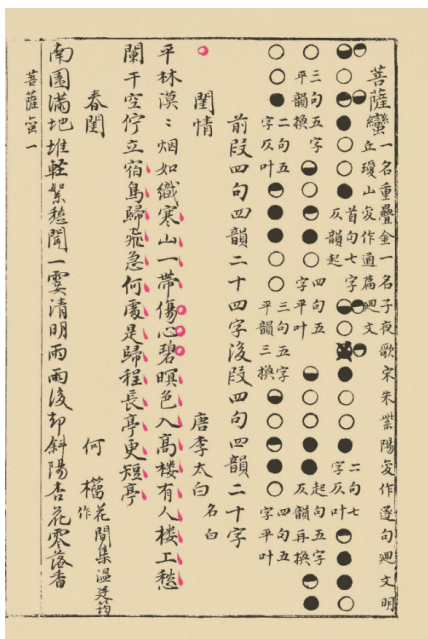 菩薩蠻 一名重疊金一名子夜歌宋朱紫陽作逐句廻文明
丘瓊山作通篇廻文
首句七字
仄韻起
二句七
字仄叶
三句五字
平韻換
四句五
字平叶
起句五字
仄韻再換
二句五
字仄叶
三句五字
平韻三換
四句五
字平叶
前段四句四韻二十四字後段四句四韻二十字
閨情 唐李太白 名白
平林漠〻烟如織寒山一帶傷心碧暝色入高楼有人楼上愁
闌干空佇立宿鳥歸飛急何處是歸程長亭更短亭
春閨 何籀 花間集溫廷筠作
南園滿地堆軽絮愁聞一霎清明雨雨後却斜陽杏花零落香
菩薩蛮 一